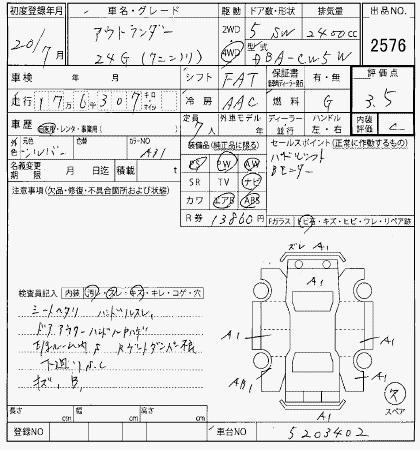 初度登録年月 車名・グレード 駆動 ドア数・形状 排気量 出品NO.
20/7月 アウトランダー 2WD 5 SW 2400cc 2576
24G (7ニンノリ) 4WD 型式 DBA-CW5W
車検 年 月 シフト FAT 保証書 有・無 評価点
走行 17万6千307 キロ マイル 冷房 AAC 燃料 G 3.5
車歴 自家用・レンタ・事業用( ) 定員 7人 外車モデル 年 ディーラー 並行 ハンドル 左・右 内装評価 C
外色 元色 シルバー 色替 カラーNO A31 装備品(純正品に限る) セールスポイント(正常に作動するもの)
名義変更期限 月 日迄 積載 t PS PW AW ハドルシフト
注意事項(欠品・修復・不具合箇所および状態) SR TV ナビ Bモニター
カワ エアB ABS
R券 13860円 Fガラス ヒビ石・キズ・ヒビ・ワレ・リペア跡
ズレ A1
検査員記入 内装 汚レ・スレ・キズ・キレ・コゲ・穴
A1
シートヘタリ ハンドルスレ
ドアアウターハンドルハゲ
A1 A1 A1
下廻りS.C
AB1 A1
キズ、B、
ス スペア
A1
長さ cm 幅 cm 高さ cm
登録NO 車台NO 5203402